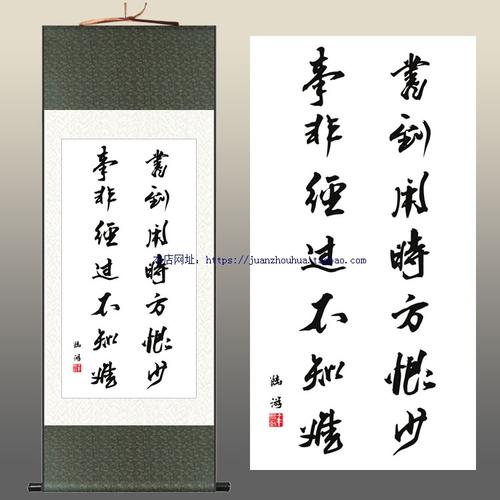 書到用時方恨少
事非經過不知難
陸游
書到用時方恨少
事非經過不知難
陸游
本店网址：https://juanzhouhua.taobao.com